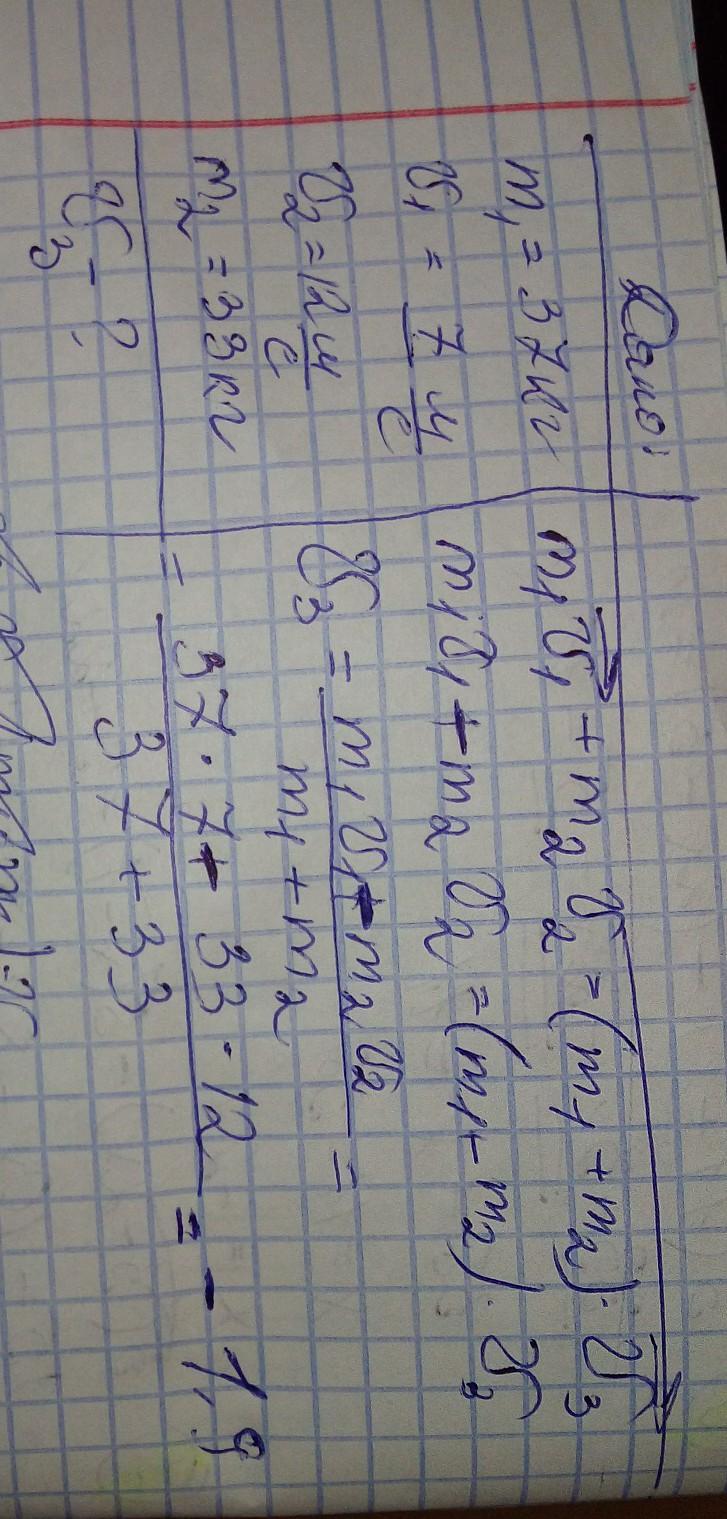 Дано:
m₁ = 37кг
v₁ = 7 м/с
v₂ = 12 м/с
m₂ = 33кг
v₃ - ?
m₁v₁ + m₂v₂ = (m₁ + m₂) · v₃
m₁v₁ - m₂v₂ = (m₁ - m₂) · v₂
v₃ = (m₁v₁ - m₂v₂) / (m₁ + m₂) =
= (37 · 7 - 33 · 12) / (37 + 33) = - 1,9